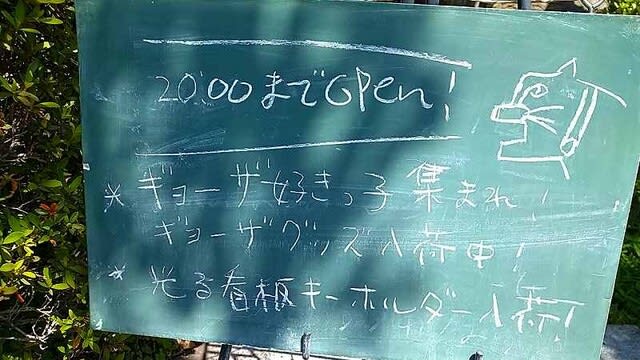 20:00までOPen!
* ギョーザ好きっ子集まれ!
ギョーザグッズ入荷中!
* 光る看板キーホルダー入荷!